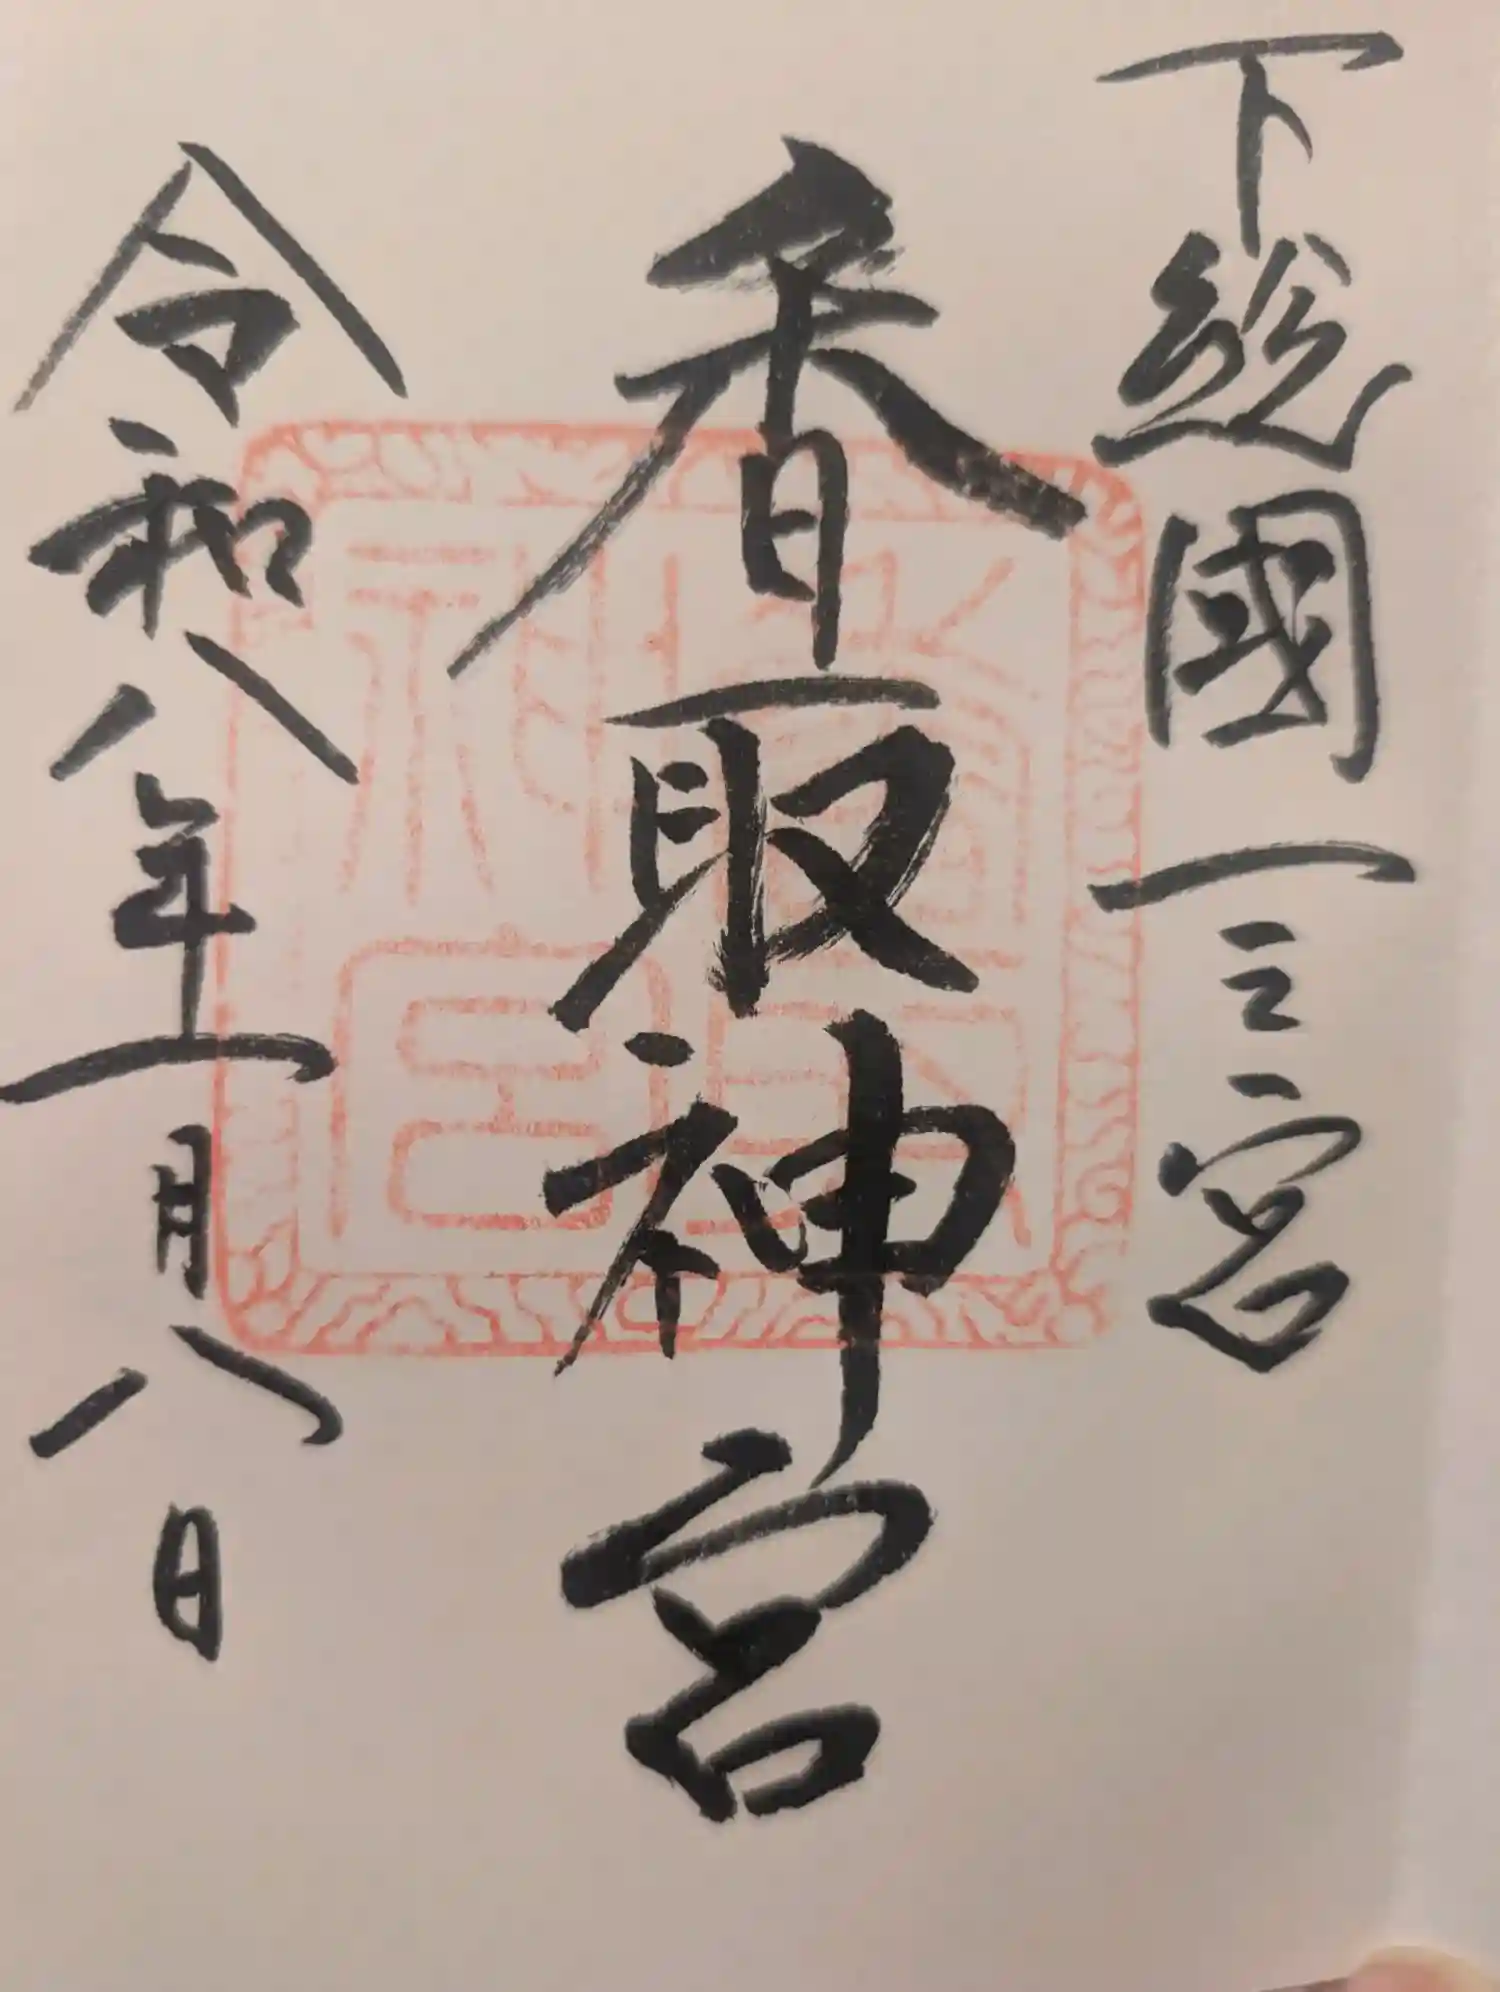 下総國一之宮
香取神宮
令和八年一月八日
香取神宮